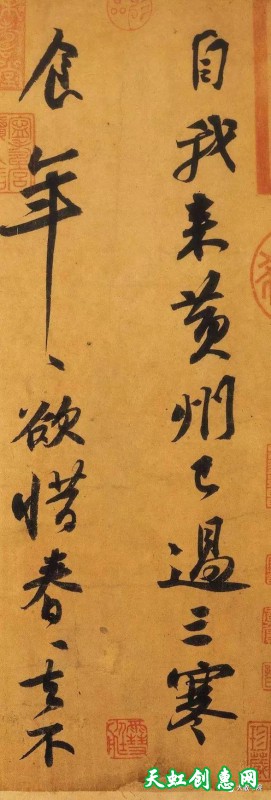 自我来黄州已过三寒
食年々欲惜春々去不
天虹创惠网